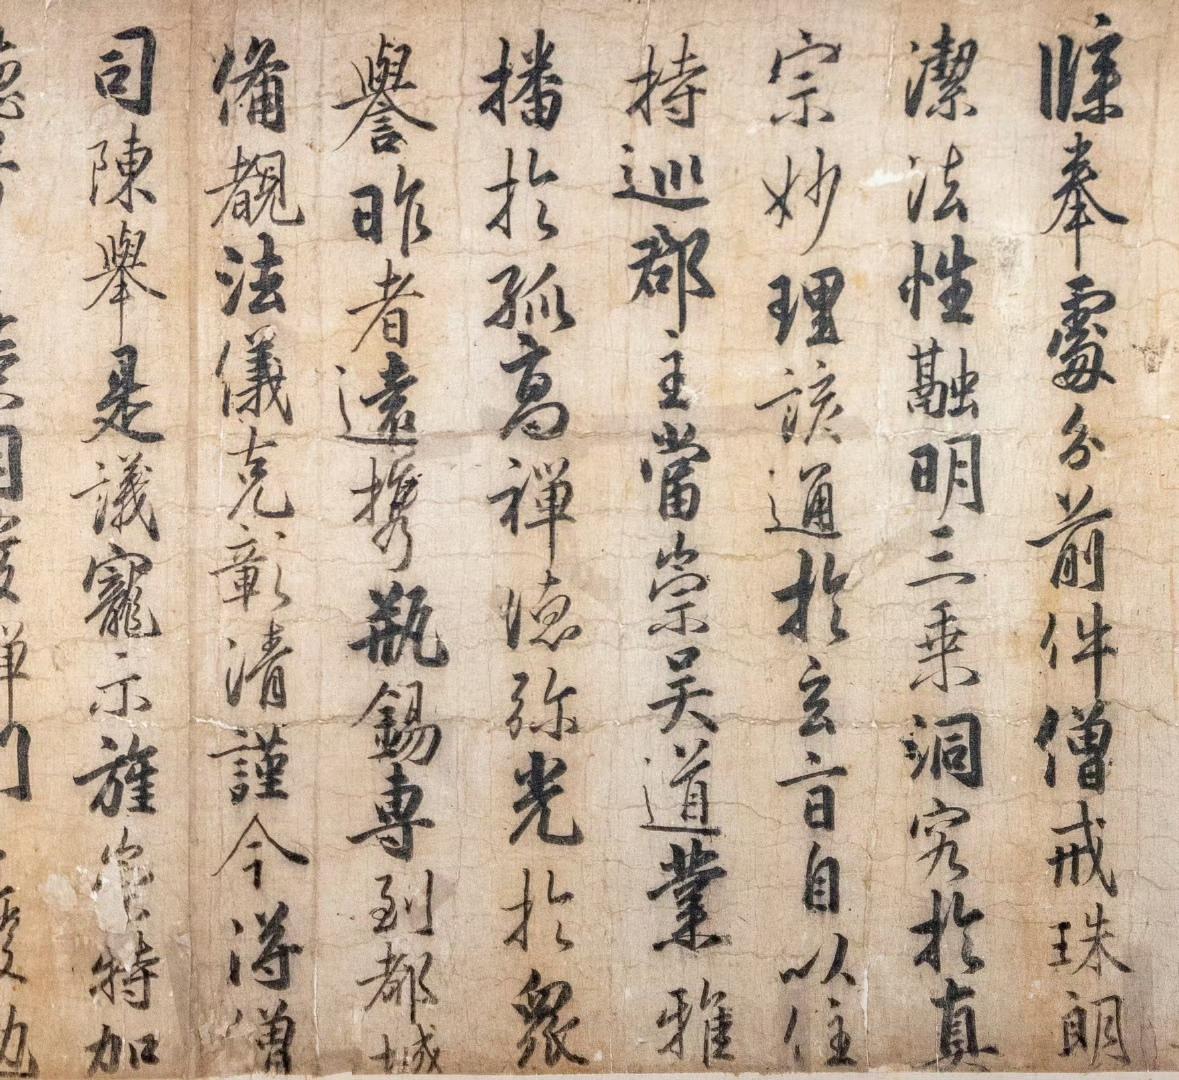 牒奉處分前件僧戒珠朗
潔法性融明三乗洞究於真
宗妙理該通於玄旨自以住
持巡郡主當崇吴道業雅
播於孤高禅德弥光於衆
譽昨者遠携瓶錫専到都城
備覩法儀克彰清謹今得僧
司陳舉是議寵示旌 特加